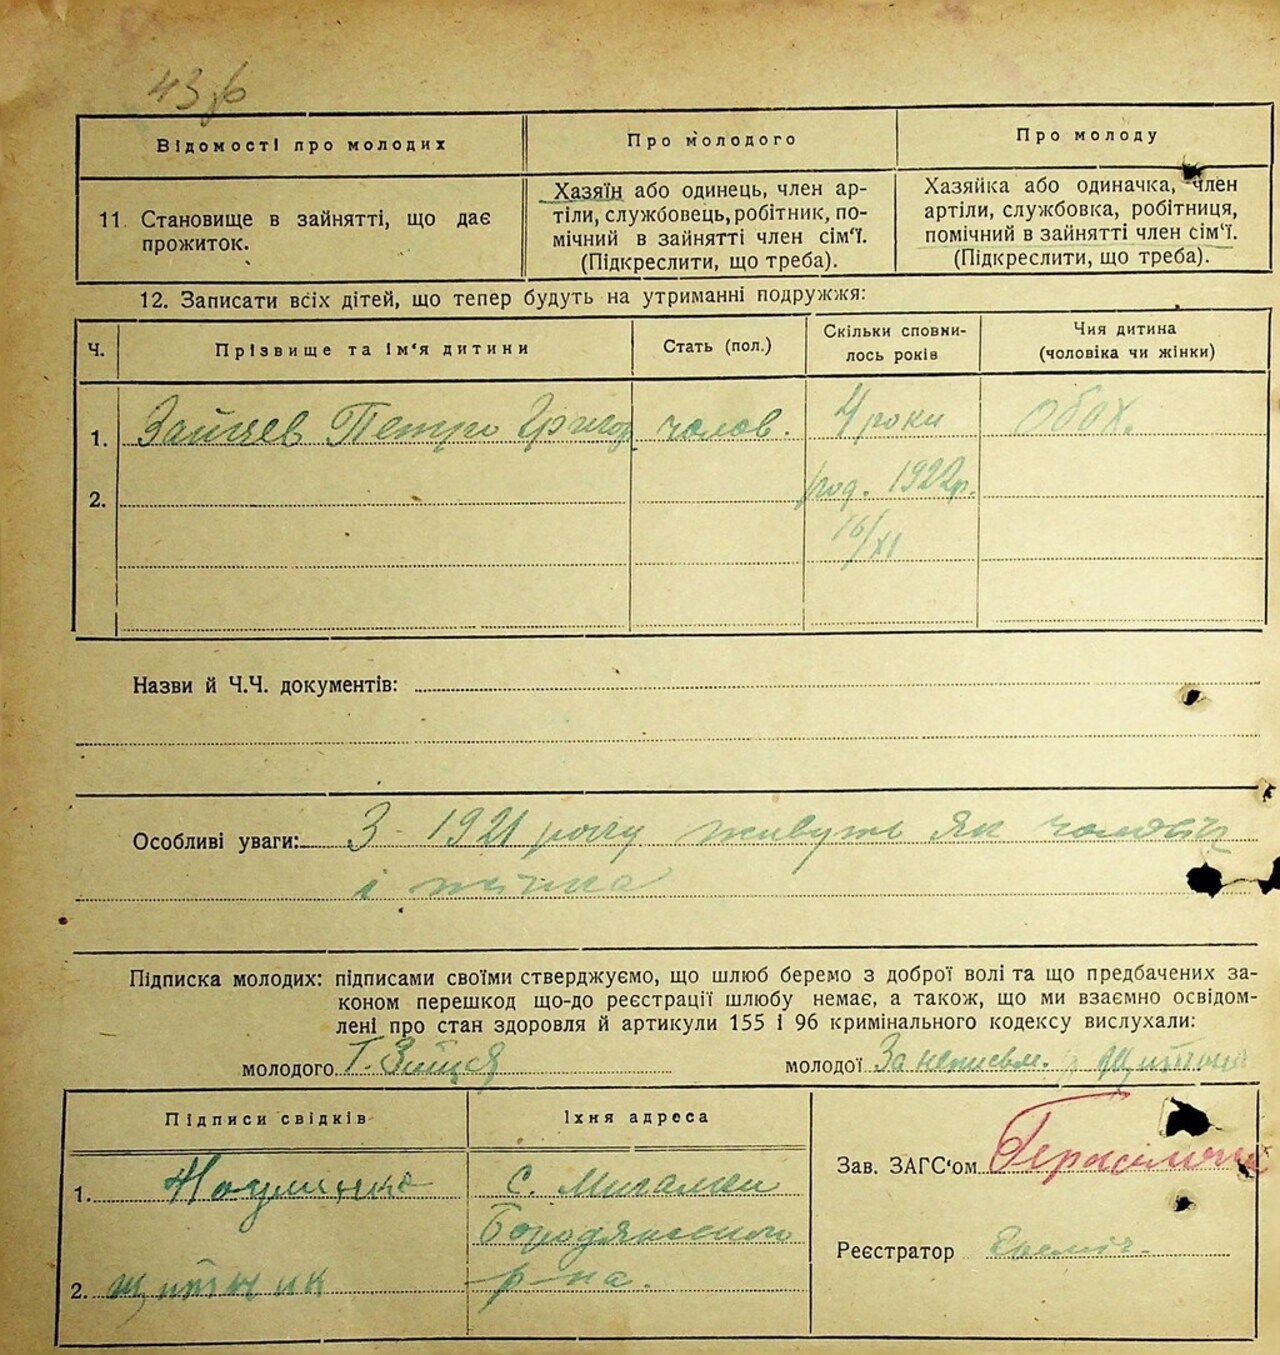 Відомості про молодих
Про молодого
Про молоду
11. Становище в зайнятті, що дає
прожиток.
Хазяїн або одинець, член ар-
тіли, службовець, робітник, по-
мічний в зайнятті член сім'ї.
(Підкреслити, що треба).
Хазяйка або одиначка, член
артіли, службовка, робітниця,
помічний в зайнятті член сім'ї.
(Підкреслити, що треба).
12. Записати всіх дітей, що тепер будуть на утриманні подружжя:
Ч.
Прізвище та ім'я дитини
Стать (пол.)
Скільки сповни-
лось років
Чия дитина
(чоловіка чи жінки)
1. Зайцев Петро Григор чолов. 4 роки обох.
2. род. 1922р.
16/XI
Назви й Ч.Ч. документів:
Особливі уваги: З 1921 року живуть як чоловік
і жінка
Підписка молодих: підписами своїми стверджуємо, що шлюб беремо з доброї волі та що предбачених за-
коном перешкод що-до реєстрації шлюбу немає, а також, що ми взаємно освідом-
лені про стан здоровля й артикули 155 і 96 кримінального кодексу вислухали:
молодого Г. Зайцев
молодої За неписьм.
Підписи свідків
Їхня адреса
1.
С. Мигалки
Бородянського
2. Щитник
р-на.
Зав. ЗАГС'ом
Реєстратор